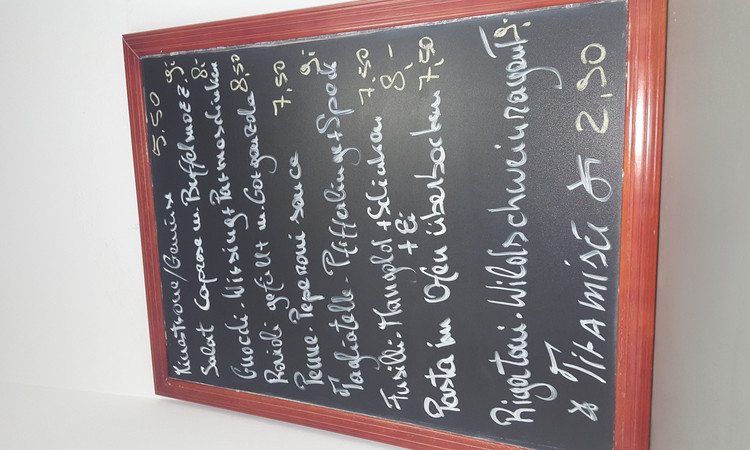 Minestrone/Gemüse 5,50
Salat Caprese m. Büffelmozz. 9,-
Gnocchi-Wirsing+Parmaschinken 8,-
Ravioli gefüllt m. Gorgonzola 8,50
Penne-Peperoni sauce 7,50
Tagliatelle-Pfifferlinge+Speck 9,-
Fusilli-Mangold+Schinken 7,50
+ Ei 8,-
Pasta im Ofen überbacken 7,50
Rigatoni-Wildschweinragout 9,-
Tiramisù 2,90